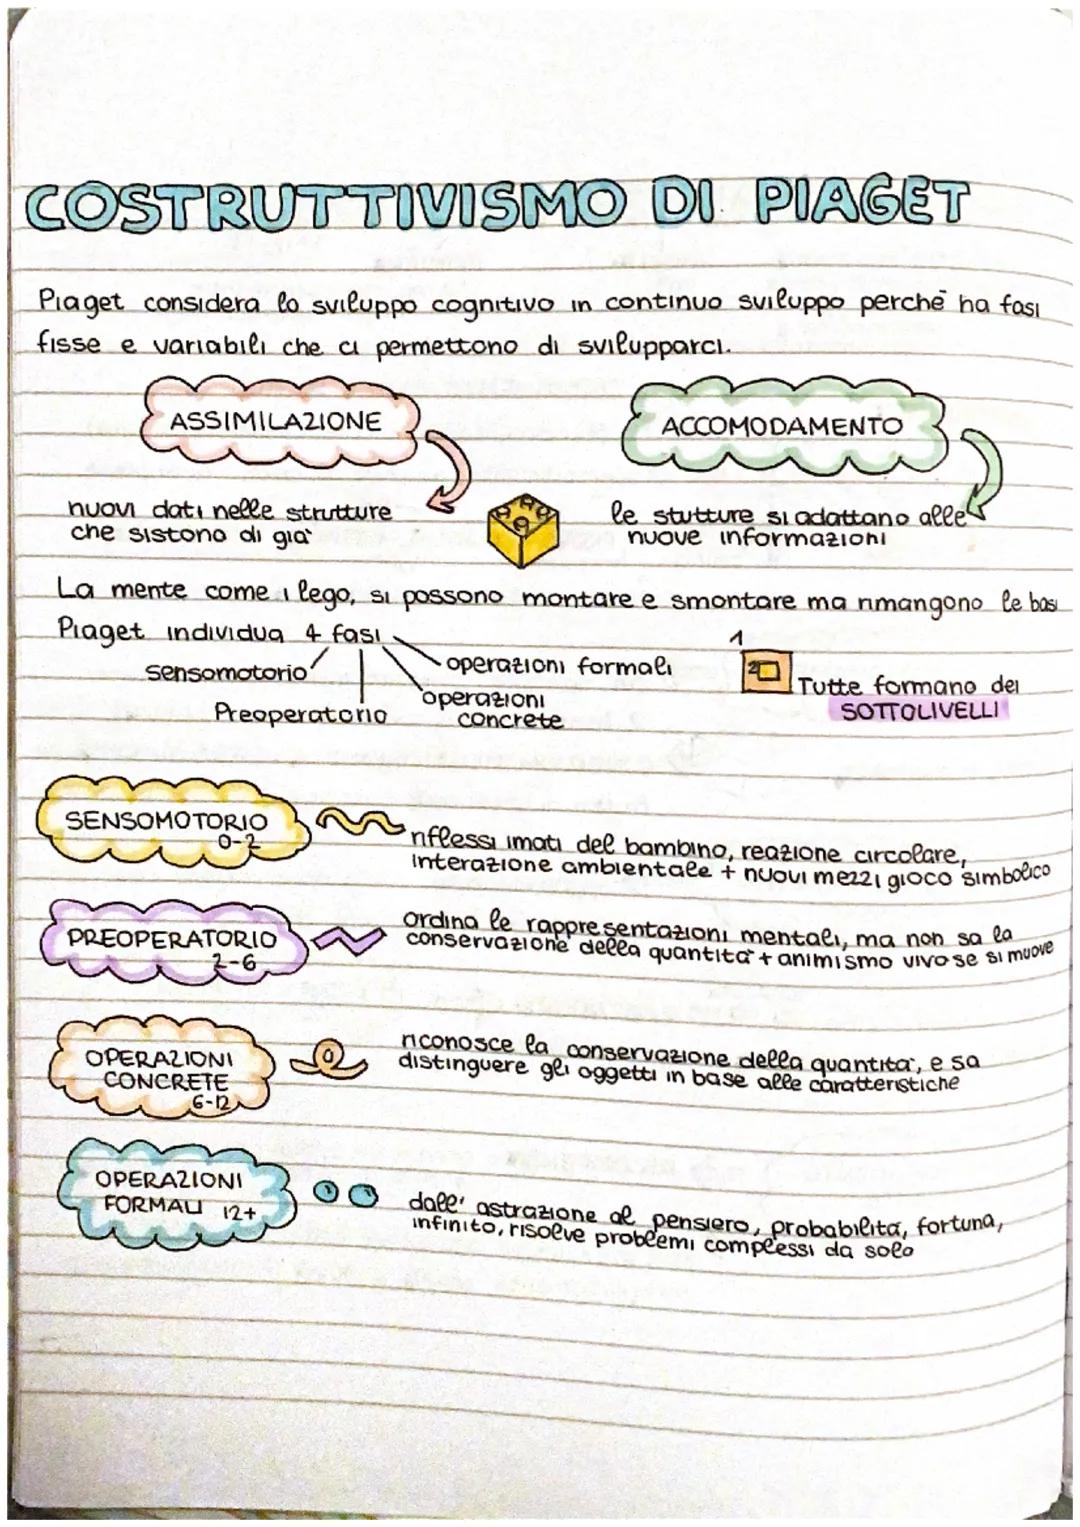 COSTRUTTIVISMO DI PIAGET
Piaget considera lo sviluppo cognitivo in continuo sviluppo perchè ha fasi
fisse e variabili che ci permettono di svilupparci.
ASSIMILAZIONE
ACCOMODAMENTO
nuovi dati nelle strutture
che sistono di già
le stutture si adattano alle
nuove informazioni
La mente come i lego, si possono montare e smontare ma rimangono le basi
Piaget individua 4 fasi
sensomotorio
Preoperatorio
operazioni
concrete
operazioni formali
1
2
Tutte formano dei
SOTTOLIVELLI
SENSOMOTORIO
0-2
riflessi imati del bambino, reazione circolare,
interazione ambientale + nuovi mezzi gioco simbolico
PREOPERATORIO
2-6
ordina le rappresentazioni mentali, ma non sa la
conservazione della quantità + animismo vivo se si muove
OPERAZIONI
CONCRETE
6-12
riconosce la conservazione della quantità, e sa
distinguere gli oggetti in base alle caratteristiche
OPERAZIONI
FORMALI 12+
dall' astrazione al pensiero, probabilità, fortuna,
infinito, risolve problemi complessi da solo